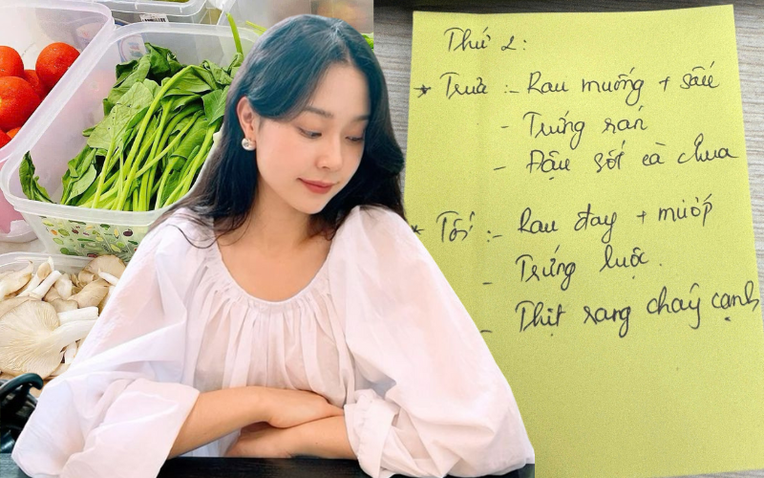 Thứ 2:
* Trưa :- Rau muống + sấu
- Trứng rán
- Đậu sốt cà chua
* Tối :- Rau đay + mướp
- Trứng luộc.
- Thịt rang cháy cạnh